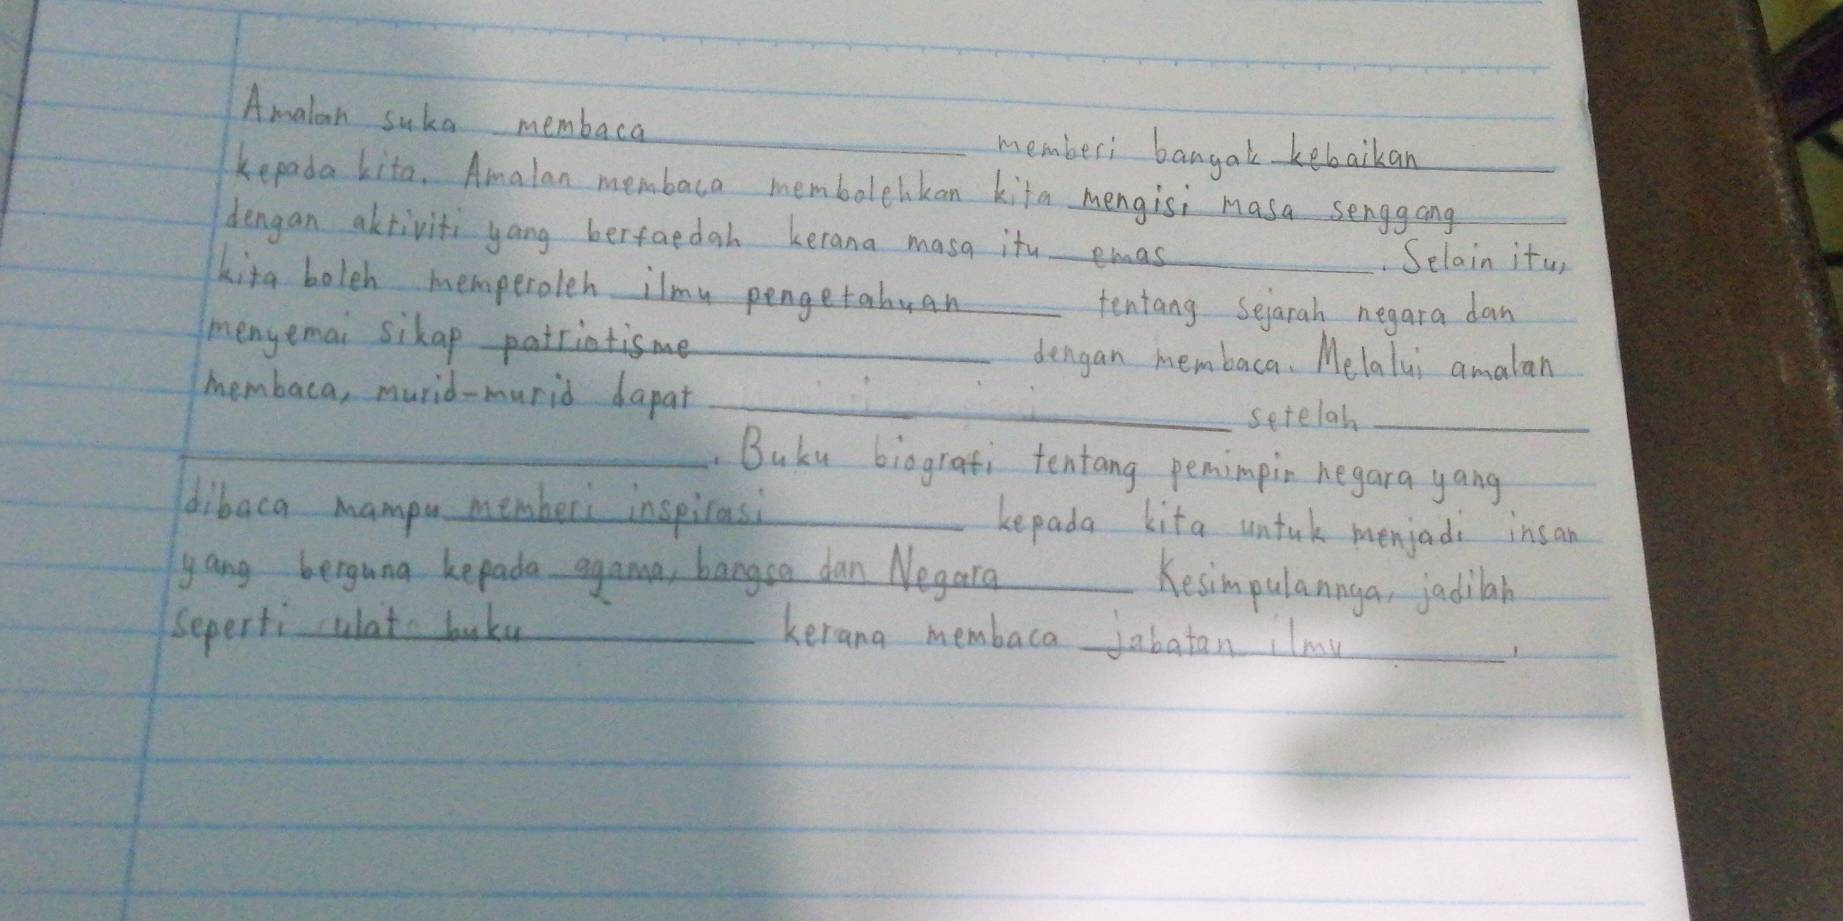 Amalan suka membaca memberi bangak kebaikan
kepada kita. Amalan membaca membolehkan kita mengisi masa senggang
dengan aktiviti yang berfaedah kerana masa itu emas. Selain itu,
kita boleh memperoleh ilmu pengetahuan tentang sejarah negara dan
menyemai sikap patriotisme dengan membaca. Melalui amalan
membaca, murid-murid dapat ____ setelah ____
____. Buku biografi tentang pemimpin negara yang
dibaca mampu memberi inspirasi kepada kita untuk menjadi insan
yang berguna kepada agama, bangsa dan Negara Kesimpulannga, jadilah
seperti ulat buku kerana membaca jabatan ilmu.